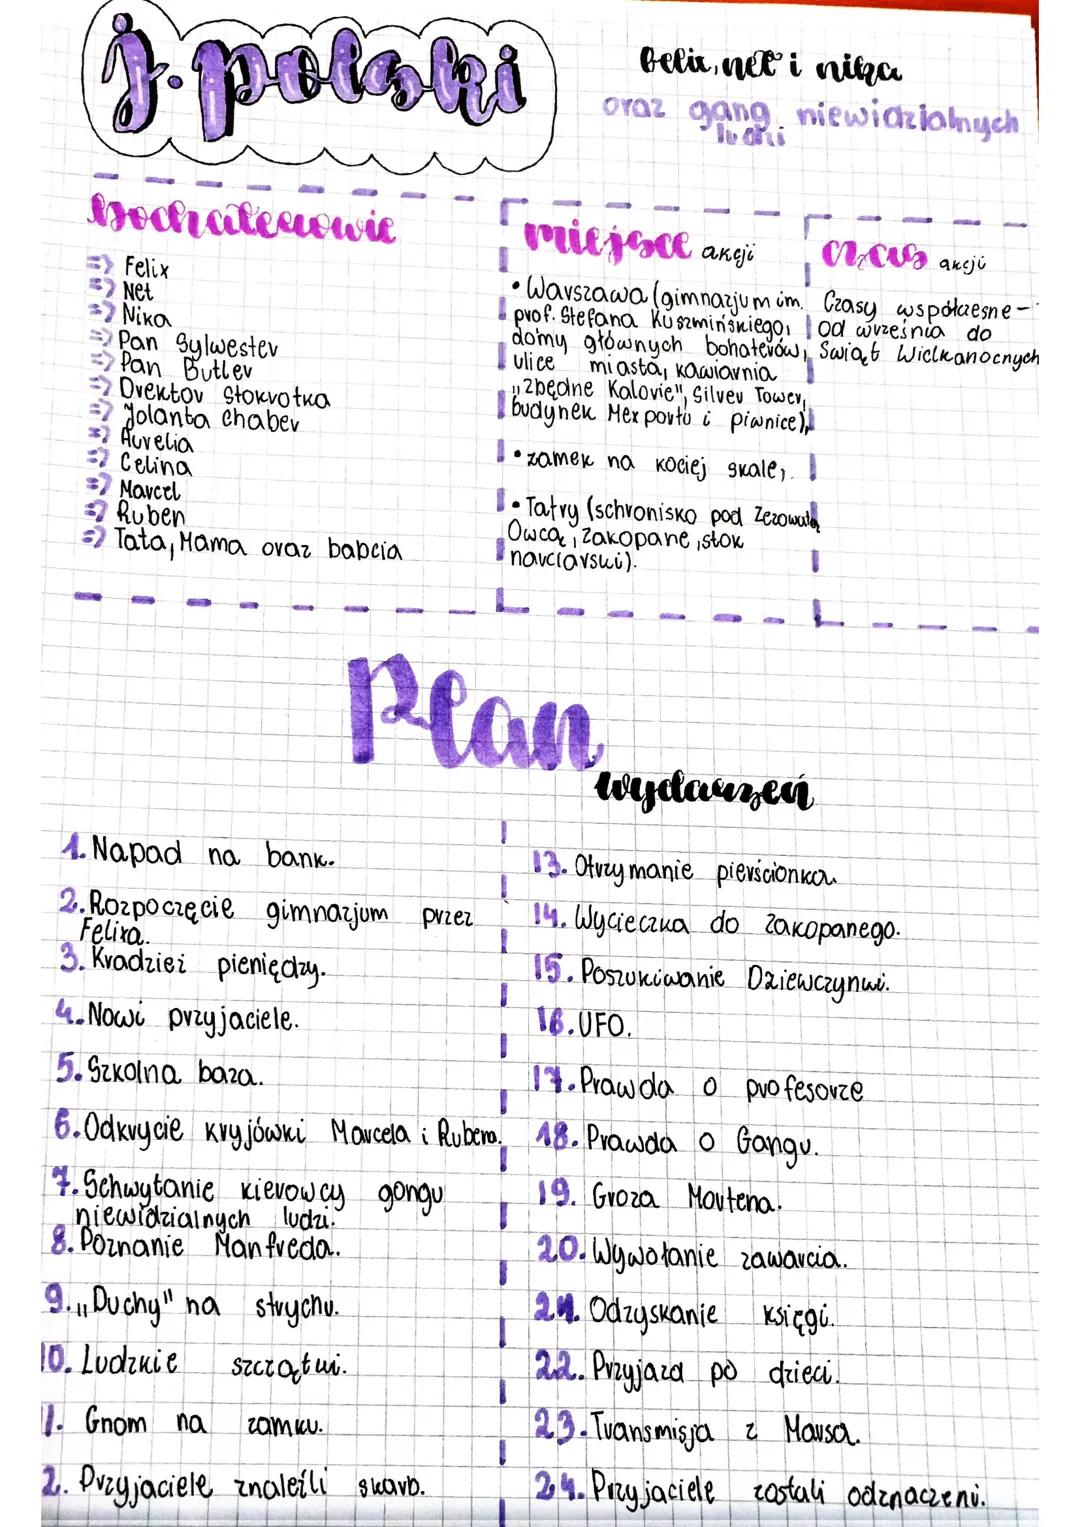 j. polski
Felix, net i nika
oraz gang niewidzialnych
ludzi
Bochaterowie
=> Felix
=> Net
=> Nika
=> Pan Sylwester
=> Pan Butler
=> Drektor Stokrotka
=> Jolanta Chaber
=> Aurelia
=> Celina
=> Marcel
=> Ruben
=> Tata, Mama oraz babcia
miejsce akcji
• Warszawa (gimnazjum im.
prof. Stefana Kuszmińskiego,
domy głównych bohaterów,
ulice miasta, kawiarnia
„Zbędne Kalorie", Silver Tower,
budynek Mex portu i piwnice),
• zamek na kociej skale,
• Tatry (schronisko pod Zezowatą
Owcą, Zakopane, stok
narciarski).
czas akcji
Czasy współczesne -
od września do
Świąt Wielkanocnych
Plan
wydarzeń
1. Napad na bank.
2. Rozpoczęcie gimnazjum przez
Felixa.
3. Kradzież pieniędzy.
4. Nowi przyjaciele.
5. Szkolna baza.
6. Odkrycie kryjówki Marcela i Rubena.
7. Schwytanie kierowcy gongu
niewidzialnych ludzi.
8. Poznanie Manfreda.
9. „Duchy" na strychu.
10. Ludzkie szczątki.
11. Gnom na zamku.
2. Przyjaciele znaleźli skarb.
13. Otrzymanie pierścionka.
14. Wycieczka do Zakopanego.
15. Poszukiwanie Dziewczynki.
16. UFO.
17. Prawda o profesorze
18. Prawda o Gangu.
19. Groza Mortena.
20. Wywołanie zawarcia.
21. Odzyskanie księgi.
22. Przyjazd po dzieci.
23. Transmisja z Marsa.
24. Przyjaciele zostali odznaczeni.